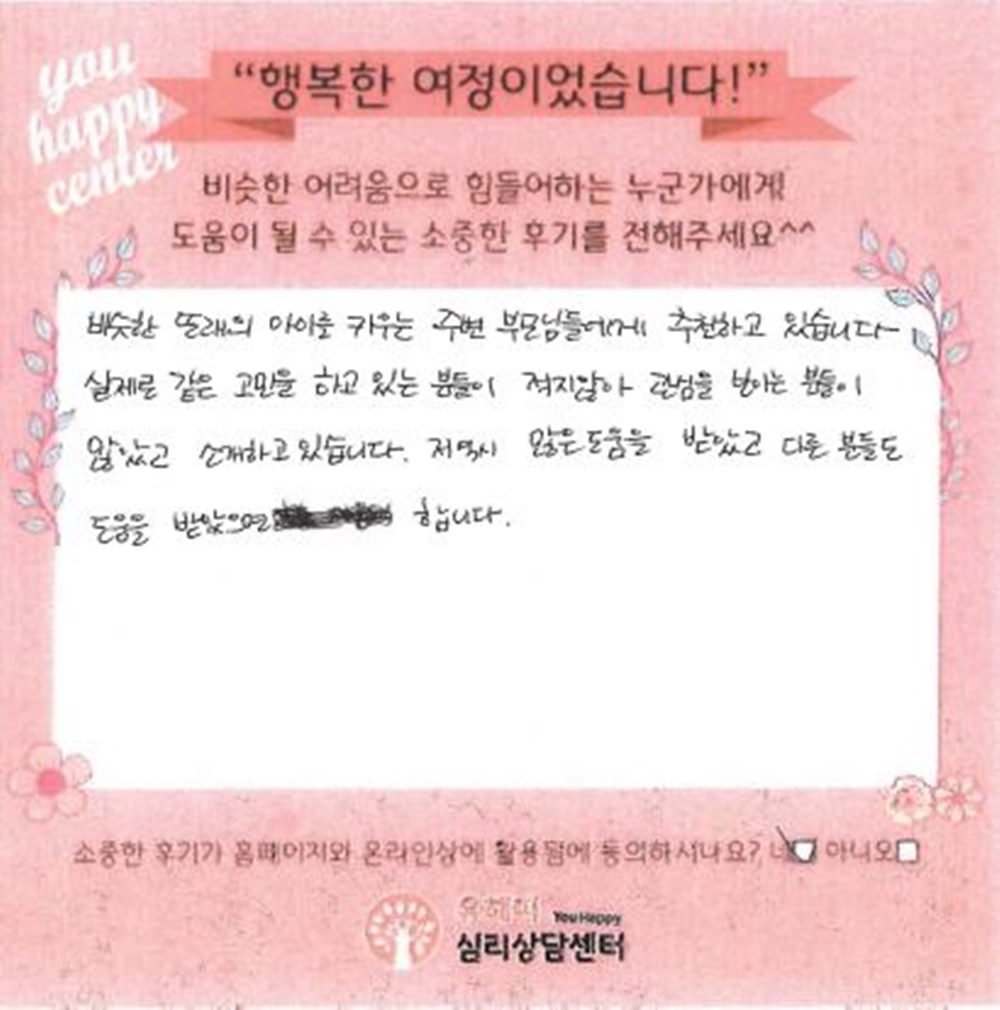 you
happy
center
“행복한 여정이었습니다!”
비슷한 어려움으로 힘들어하는 누군가에게
도움이 될 수 있는 소중한 후기를 전해주세요^^
비슷한 또래의 아이를 키우는 주변 부모님들에게 추천하고 있습니다
실제로 같은 고민을 하고 있는 분들이 적지않아 관심을 보이는 분들이
많았고 소개하고 있습니다. 저 역시 많은 도움을 받았고 다른 분들도
도움을 받았으면 합니다.
소중한 후기가 홈페이지와 온라인상에 활용됨에 동의하시나요? 네 아니오
유해피 You Happy
심리상담센터